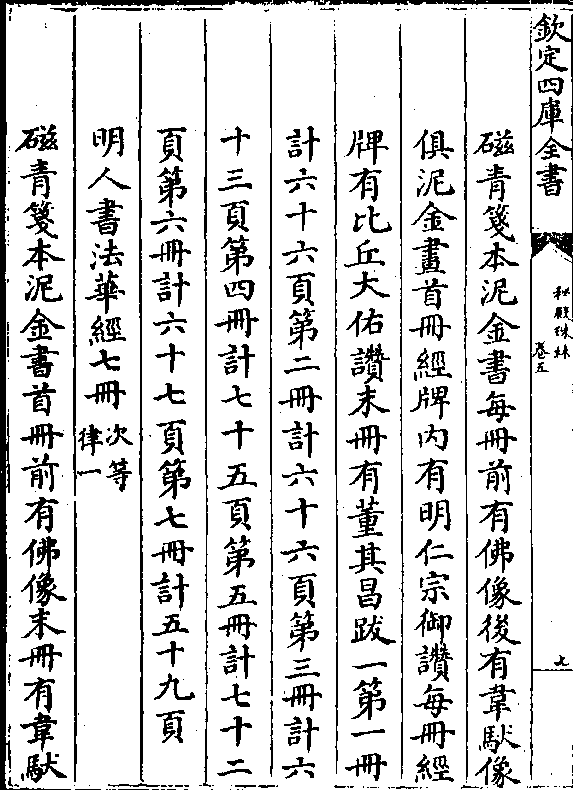 欽定四庫全書
秘殿珠林
卷五
九
磁青箋本泥金書每冊前有佛像後有韋馱像
俱泥金畫首冊經牌內有明仁宗御讚每冊經
牌有比丘大佑讚末冊有董其昌跋一第一冊
計六十六頁第二冊計六十六頁第三冊計六
十三頁第四冊計七十五頁第五冊計七十二
頁第六冊計六十七頁第七冊計五十九頁
明人書法華經七冊 次等 律一
磁青箋本泥金書首冊前有佛像末冊有韋馱